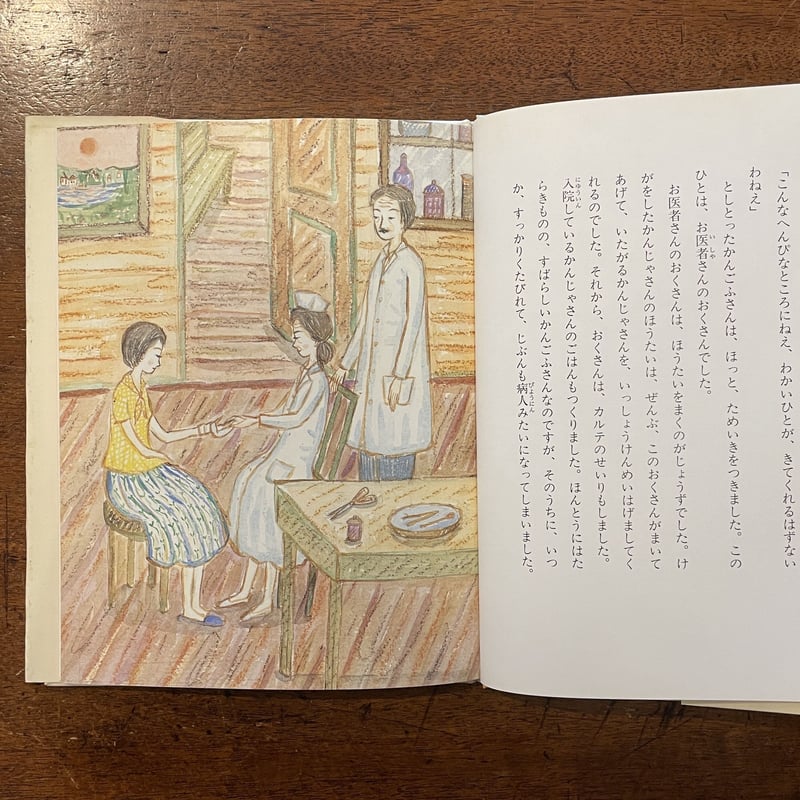 「こんなへんぴなところにねえ、わかいひとが、きてくれるはずない
わねえ」
としとったかんごふさんは、ほっと、ためいきをつきました。この
ひとは、お医者さんのおくさんでした。
お医者さんのおくさんは、ほうたいをまくのがじょうずでした。け
がをしたかんじゃさんのほうたいは、ぜんぶ、このおくさんがまいて
あげて、いたがるかんじゃさんを、いっしょうけんめいはげましてく
れるのでした。それから、おくさんは、カルテのせいりもしました。
入院しているかんじゃさんのごはんもつくりました。ほんとうにはた
らきものの、すばらしいかんごふさんなのですが、そのうちに、いつ
か、すっかりくたびれて、じぶんも病人みたいになってしまいました。